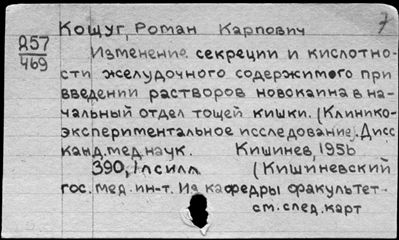 Кощуг, Роман Карпович
7
Д57
469
Изменение секреции и кислотно-
сти желудочного содержимого при
введении растворов новокаина в на-
чальный отдел тощей кишки. (Клинико-
экспериментальное исследование). Дисс
канд. мед. наук. Кишинев, 1956
390, 1 псилл (Кишиневский
гос. мед. ин-т. Из кафедры факультет-
см. след. карт